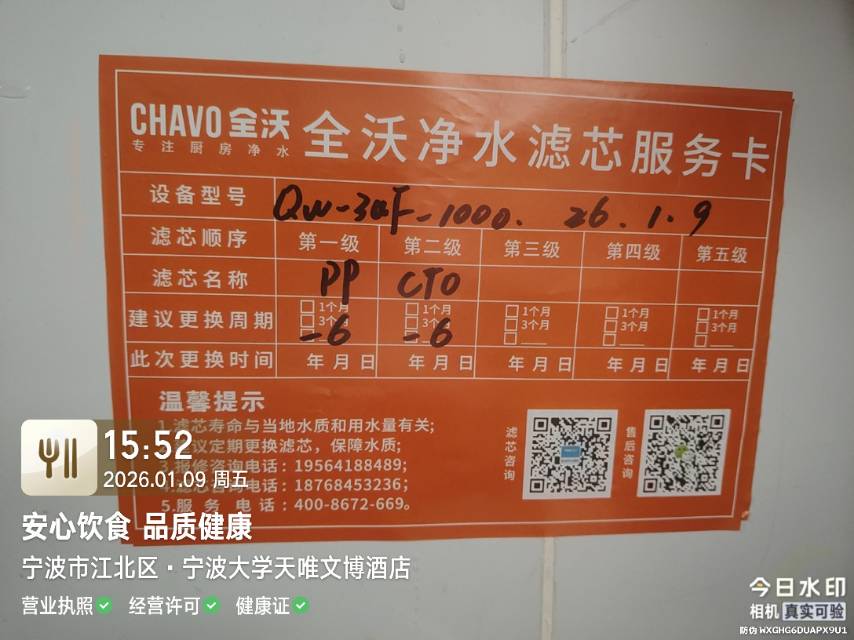 CHAVO 全沃
专注厨房净水
全沃净水滤芯服务卡
设备型号 QW-3QF-1000. 26.1.9
滤芯顺序 第一级 第二级 第三级 第四级 第五级
滤芯名称 PP CTO
建议更换周期 1个月 1个月 1个月 1个月 1个月
3个 3个 3个月 3个月 3个月
-6 -6
此次更换时间 年月日 年月日 年月日 年月日 年月日
温馨提示
1.滤芯寿命与当地水质和用水量有关;
议定期更换滤芯，保障水质;
3.报修咨询电话：19564188489;
4.滤芯咨询电话：18768453236;
5.服务电话：400-8672-669。
滤芯咨询
售后咨询
15:52
2026.01.09 周五
安心饮食 品质健康
宁波市江北区·宁波大学天唯文博酒店
营业执照 经营许可 健康证
今日水印
相机 真实可验
防伪 WXGHG6DUAPX9U1